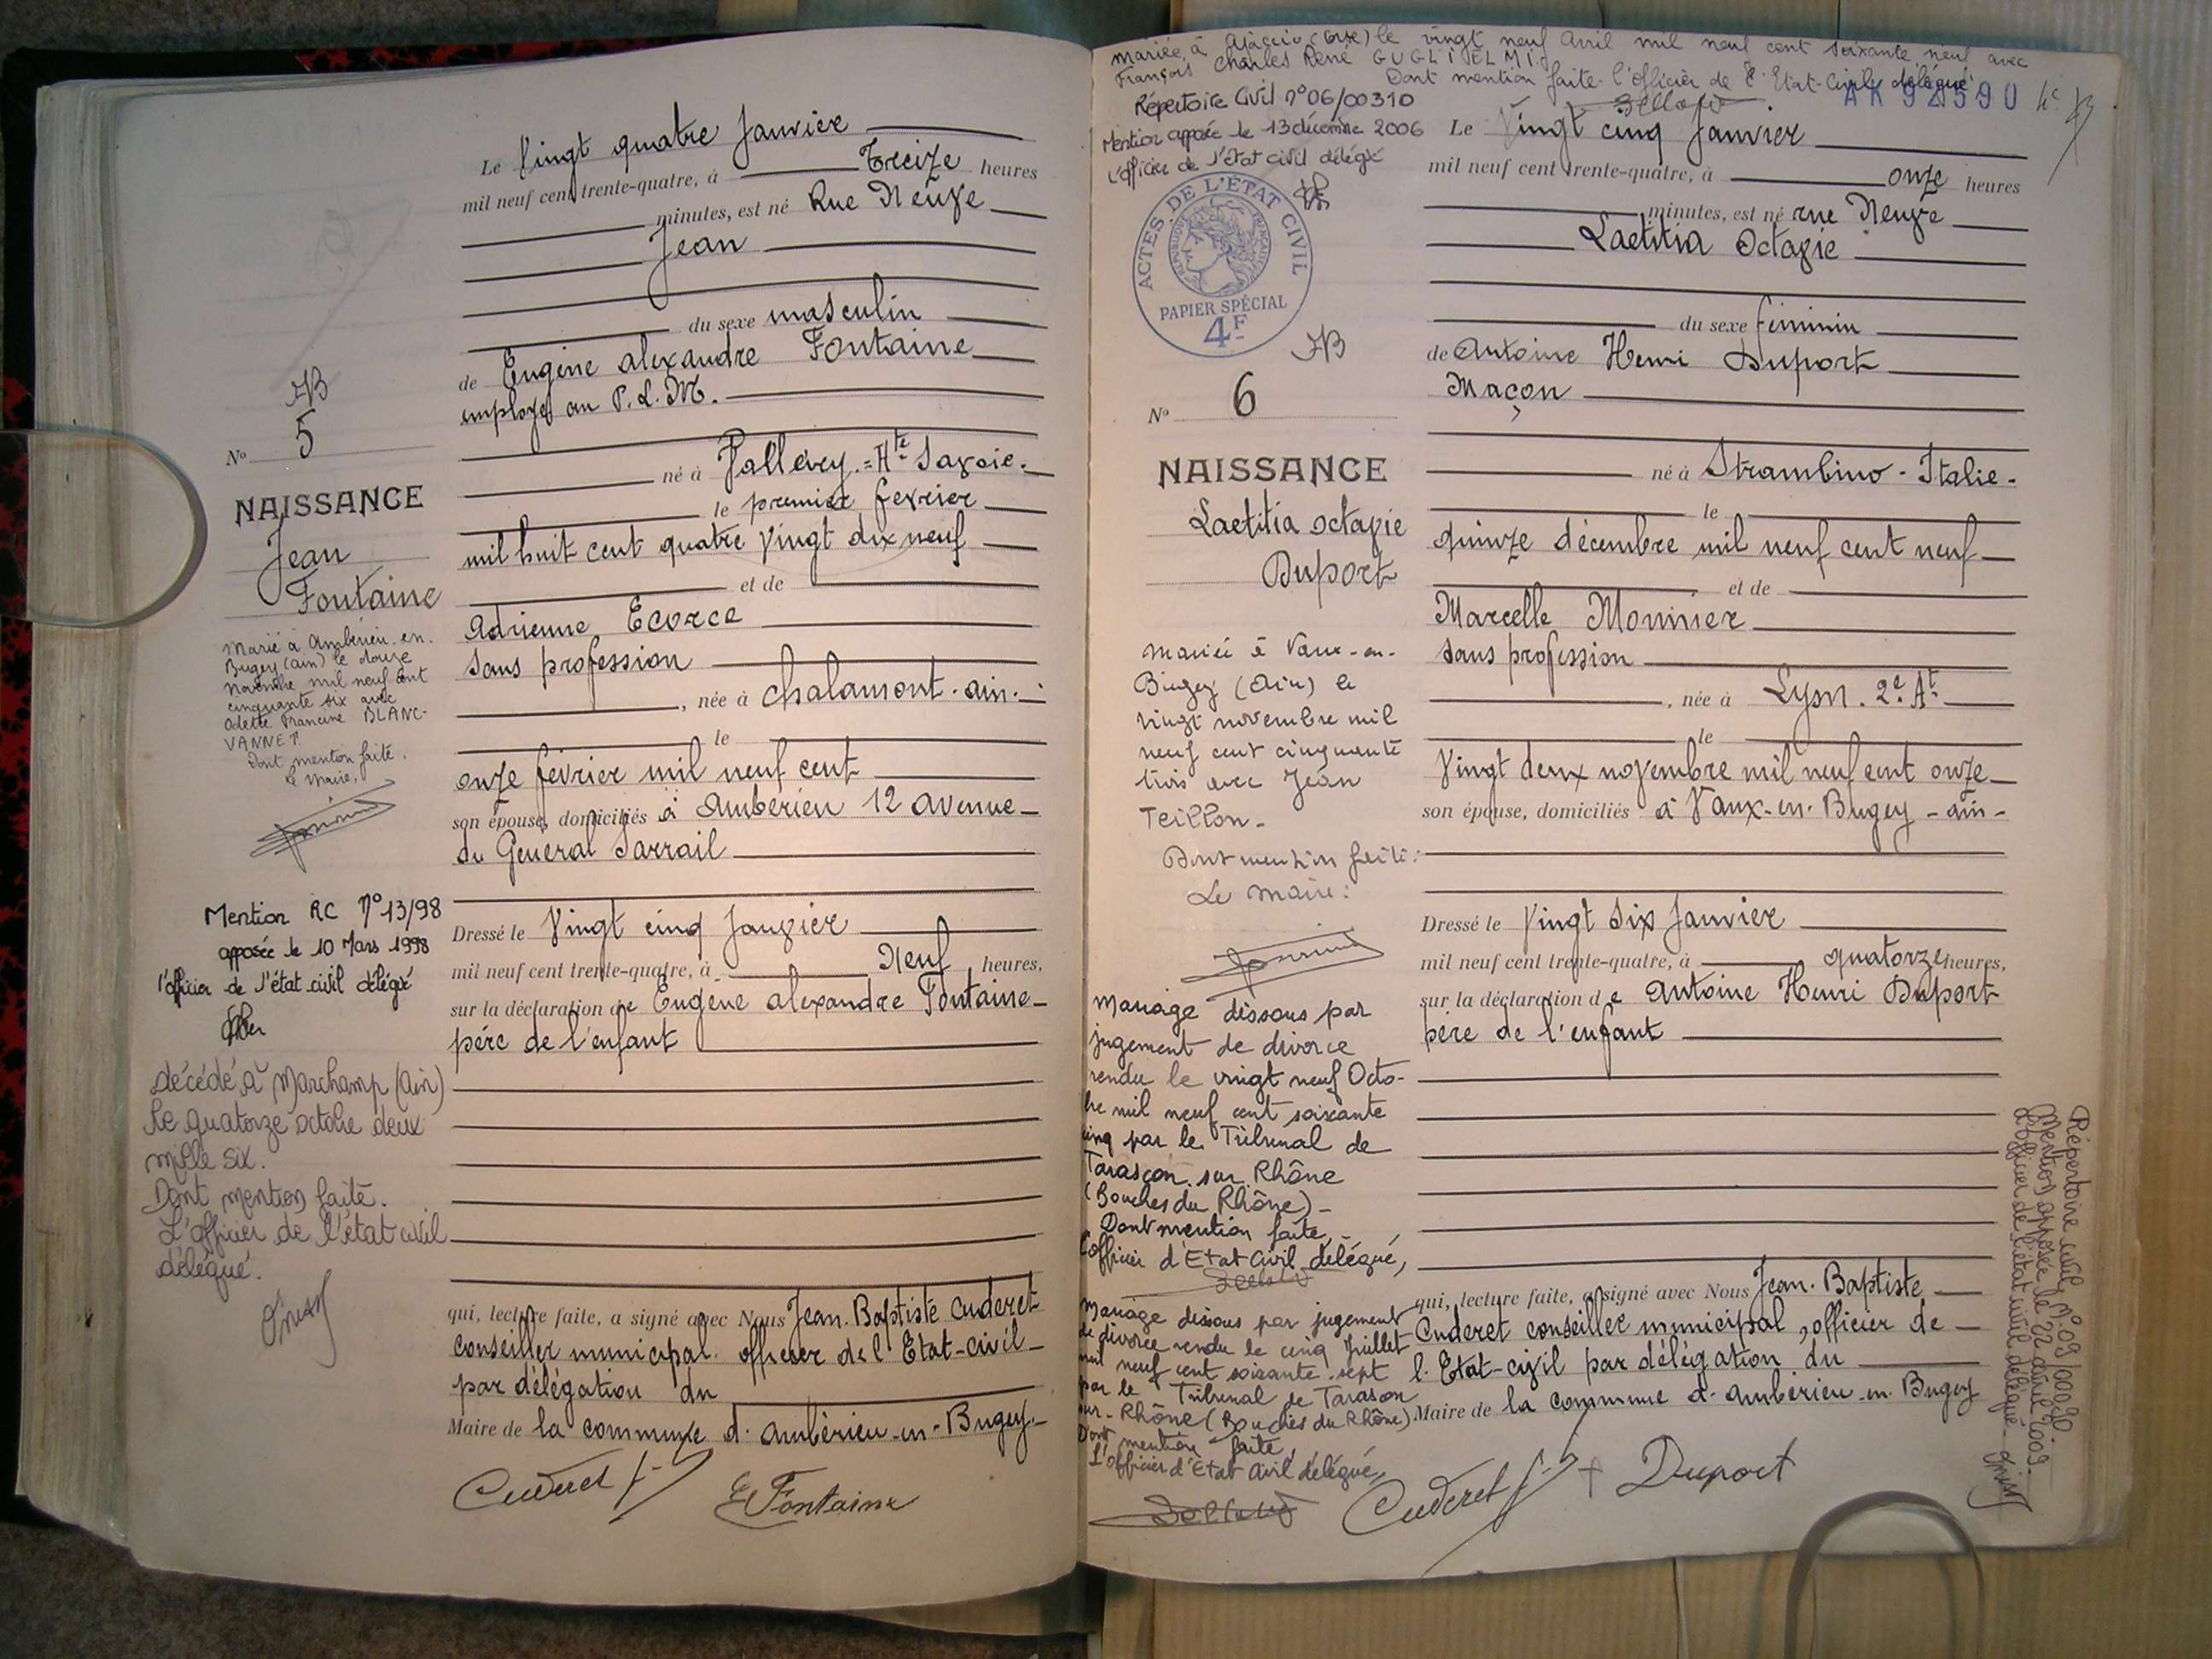 JB
No 5
NAISSANCE
Jean
Fontaine
Marié à Ambérieu-en-
Bugey (Ain) le douze
novembre mil neuf cent
cinquante six avec
Odette Francine BLANC-
VANNET
Dont mention faite.
le Maire,
Mention RC N°13/98
apposée le 10 Mars 1998
l'officier de l'état civil délégué
décédé à Marchamp (Ain)
le quatorze octobre deux
mille six.
Dont mention faite.
L'officier de l'état civil
délégué.
Le Vingt quatre Janvier
mil neuf cent trente-quatre, à Treize heures
minutes, est né Rue Neuve
Jean
du sexe masculin
de Eugène alexandre Fontaine
employé au P.L.M.
né à Vallévry = Hte Savoie.
le premier fevrier
mil huit cent quatre vingt dix neuf
et de
Adrienne Ecorce
sans profession
, née à Chalamont. ain.
le
onze février mil neuf cent
son épouse, domiciliés à Ambérieu 12 avenue
du Général Sarrail
Dressé le Vingt cinq Janvier
mil neuf cent trente-quatre, à Neuf heures,
sur la déclaration de Eugène alexandre Fontaine
père de l'enfant
qui, lecture faite, a signé avec Nous Jean-Baptiste Cuderet
conseiller municipal. officier de l'Etat-civil
par délégation du
Maire de la commune d'Ambérieu-en-Bugey.
Cuderet
E Fontaine
mariée à Ajaccio (Corse) le vingt neuf Avril mil neuf cent soixante neuf avec
François Charles René GUGLIELMI.
Dont mention faite. l'officier de l'Etat-Civil délégué
Répertoire Civil n°06/00310
Mention apposée le 13 décembre 2006
l'officier de l'état civil délégué
AK 92590
ACTES DE L'ÉTAT CIVIL
RÉPUBLIQUE FRANÇAISE
PAPIER SPÉCIAL
4F
JB
No 6
NAISSANCE
Laetitia Octavie
Duport
mariée à Vaux-en-
Bugey (Ain) le
vingt novembre mil
neuf cent cinquante
trois avec Jean
Teillon-
Dont mention faite:
Le Maire:
Mariage dissous par
jugement de divorce
rendu le vingt neuf Octo-
bre mil neuf cent soixante
cinq par le Tribunal de
Tarascon sur Rhône
(Bouches du Rhône)-
Dont mention faite,
l'officier d'Etat Civil délégué,
Mariage dissous par jugement
de divorce rendu le cinq Juillet
mil neuf cent soixante-sept
par le Tribunal de Tarascon
sur-Rhône (Bouches du Rhône)
Dont mention faite,
L'officier d'Etat Civil délégué,
Le Vingt cinq Janvier
mil neuf cent trente-quatre, à onze heures
minutes, est né rue Neuve
Laetitia Octavie
du sexe féminin
de Antoine Henri Duport
Maçon
né à Strambino - Italie -
le
quinze décembre mil neuf cent neuf
et de
Marcelle Monnier
sans profession
, née à Lyon. 2e At
le
Vingt deux novembre mil neuf cent onze
son épouse, domiciliés à Vaux-en-Bugey - ain -
Dressé le Vingt six Janvier
mil neuf cent trente-quatre, à quatorze heures,
sur la déclaration de Antoine Henri Duport
père de l'enfant
qui, lecture faite, a signé avec Nous Jean-Baptiste
Cuderet conseiller municipal, officier de
l'Etat-civil par délégation du
Maire de la commune d'Ambérieu-en-Bugey
Cuderet
Duport
Répertoire civil n°09/00090
Mention apposée le 22 avril 2009
L'officier de l'état civil délégué